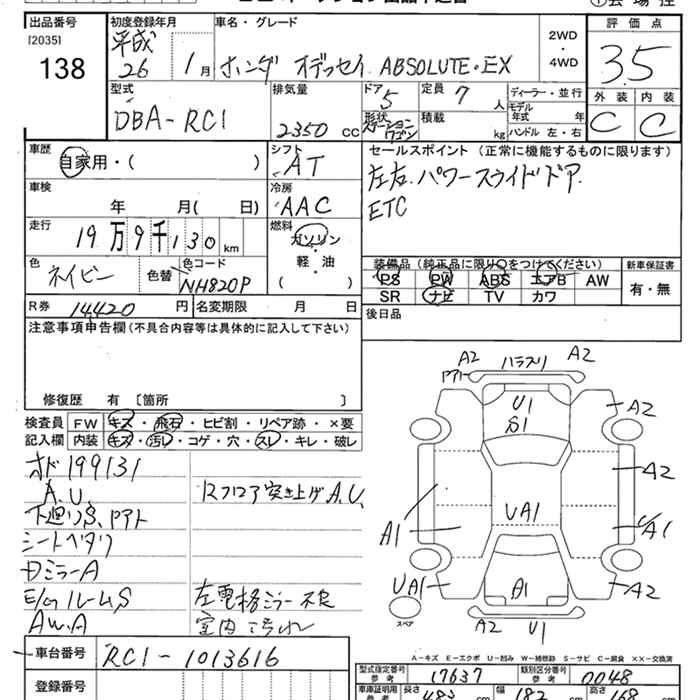 出品番号
[2035]
138
初度登録年月
平成
26 1月
車名・グレード
ホンダ オデッセイ ABSOLUTE・EX
2WD
・
4WD
評価点
3.5
外装 内装
C C
型式
DBA-RC1
排気量
2350 CC
ドア
5
形状
ステーションワゴン
定員 7 人
積載 kg
ディーラー・並行
モデル
年式 年
ハンドル 左・右
車歴
自家用・( )
シフト
AT
車検
年 月( 日)
冷房
AAC
走行
19万9千130km
燃料
ガソリン
・
軽・油
( )
色
ネイビー
色替
色コード
NH820P
R券 14420 円
名変期限 月 日
セールスポイント (正常に機能するものに限ります)
左右パワースライドドア
ETC
装備品(純正品に限り○をつけてください)
PS PW ABS エアB AW
SR ナビ TV カワ
新車保証書
有・無
後日品
注意事項申告欄(不具合内容等は具体的に記入して下さい)
修復歴 有 〔箇所 〕
検査員
記入欄
FW キズ・飛石・ヒビ割・リペア跡・×要
内装 キズ・汚レ・コゲ・穴・スレ・キレ・破レ
オド199131
A.U.
下廻りS、Pアト
シートヘタリ
Dミラ-A
E/gルームS
AW.A
Rフロア突き上げA.U.
左電格ミラー不良
室内汚れ
A2 ハラスリ A2
Pアト
U1
S1
A2
A2
A1
UA1
A1
UA1
A1
A2
スペア
A2 U1
車台番号
RC1-1013616
登録番号
A-キズ E-エクボ U-凹み W-補修跡 S-サビ C-腐食 ××-交換済
型式指定番号
参考
17637
類別区分番号
参考
0048
車庫証明用
参考
長さ
483
幅
182
高さ
168